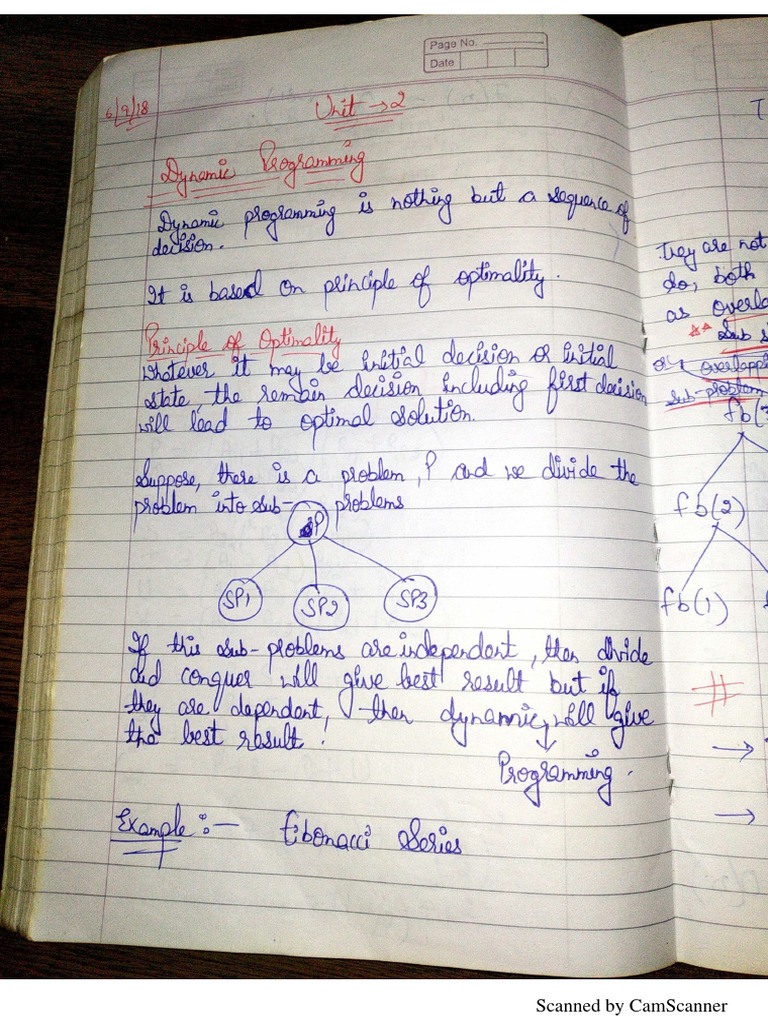 Page No.
Date
6/9/18
Unit → 2
Dynamic Programming
Dynamic programming is nothing but a sequence of
decision.
It is based on principle of optimality.
Principle of Optimality
Whatever it may be initial decision or initial
state, the remain decision including first decision
will lead to optimal solution.
Suppose, there is a problem, P and we divide the
problem into sub-problems
P
SP1 SP2 SP3
If this sub-problems are independent, then divide
did conquer will give best result but if
they are dependent, then dynamic, will give
the best result.
Programming.
Example :- Fibonacci Series
They are not
do, both
as
**
Sub
or
sub-problem
fb(2)
fb(1)
#
→
→
Scanned by CamScanner